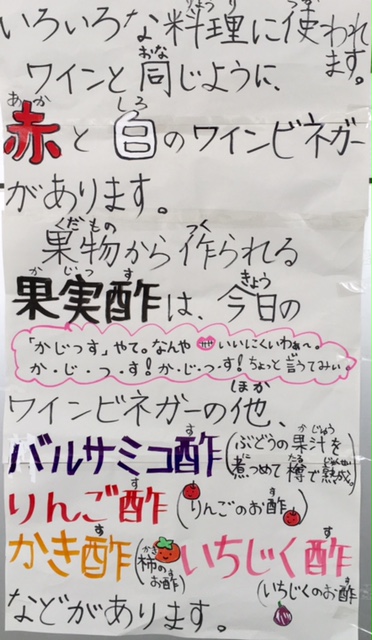 いろいろな料理に使われ
ます。
ワインと同じように、
赤と白のワインビネガー
があります。
果物から作られる
果実酢は、今日の
「かじつす」やて。なんや いいにくいわぁ〜。
か・じ・つ・す!か・じ・つ・す!ちょっと言うてみぃ。
ワインビネガーの他、
バルサミコ酢(ぶどうの果汁を
煮つめて樽で熟成。)
りんご酢(りんごのお酢)
かき酢(柿のお酢)いちじく酢
(いちじくのお酢
などがあります。